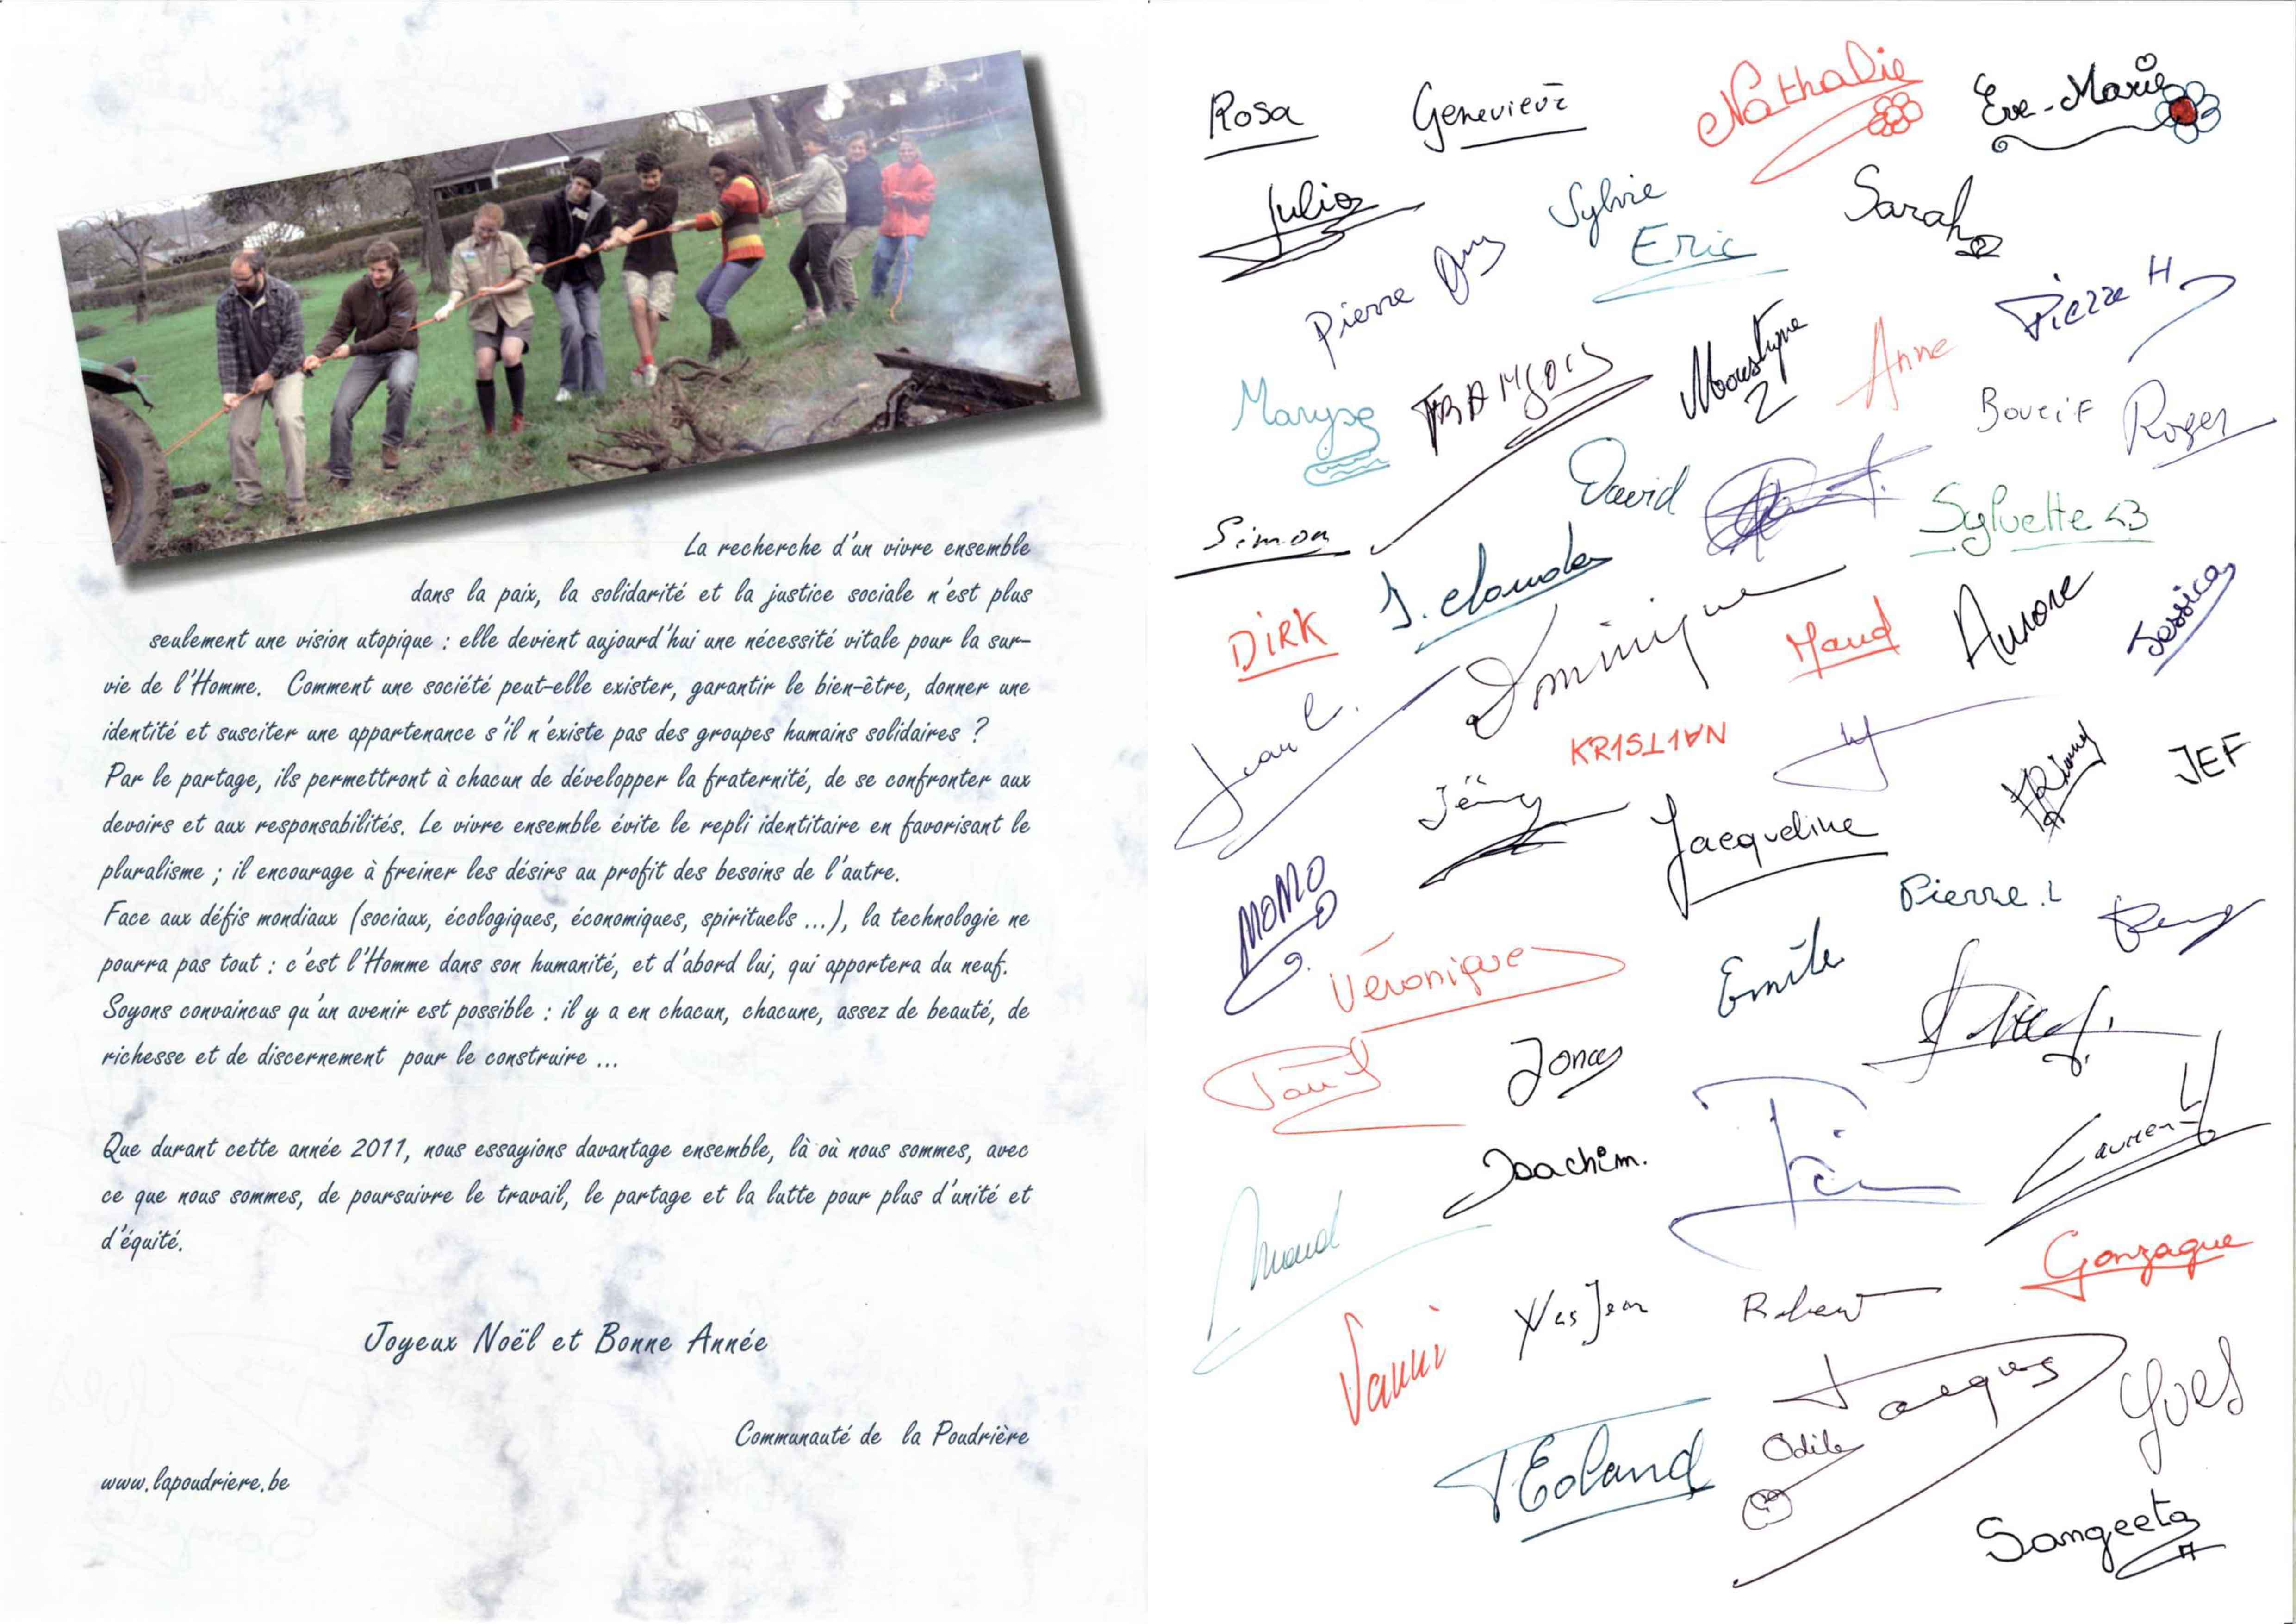 La recherche d'un vivre ensemble
dans la paix, la solidarité et la justice sociale n'est plus
seulement une vision utopique : elle devient aujourd'hui une nécessité vitale pour la sur-
vie de l'Homme. Comment une société peut-elle exister, garantir le bien-être, donner une
identité et susciter une appartenance s'il n'existe pas des groupes humains solidaires ?
Par le partage, ils permettront à chacun de développer la fraternité, de se confronter aux
devoirs et aux responsabilités. Le vivre ensemble évite le repli identitaire en favorisant le
pluralisme ; il encourage à freiner les désirs au profit des besoins de l'autre.
Face aux défis mondiaux (sociaux, écologiques, économiques, spirituels ...), la technologie ne
pourra pas tout : c'est l'Homme dans son humanité, et d'abord lui, qui apportera du neuf.
Soyons convaincus qu'un avenir est possible : il y a en chacun, chacune, assez de beauté, de
richesse et de discernement pour le construire ...
Que durant cette année 2011, nous essayions davantage ensemble, là où nous sommes, avec
ce que nous sommes, de poursuivre le travail, le partage et la lutte pour plus d'unité et
d'équité.
Joyeux Noël et Bonne Année
Communauté de la Poudrière
www.lapoudriere.be
Rosa
Geneviève
Nathalie
Eve-Marie
Julia
Sylvie
Sarah
Pierre
Eric
Pierre H
Maryse
FRANÇOIS
Moustique
Anne
Boucif
Roger
David
Simon
Sylvette
J. claude
DIRK
Dominique
Maud
Aurore
Jessica
Jean C.
KRISTIAN
JEF
Jacqueline
MOMO
Pierre.L
Véronique
Emile
Paul
Jonas
Joachim.
Laurent
Gonzague
Vanni
Yves Jean
Robert
Jacques
Yves
Odile
Roland
Sangeeta